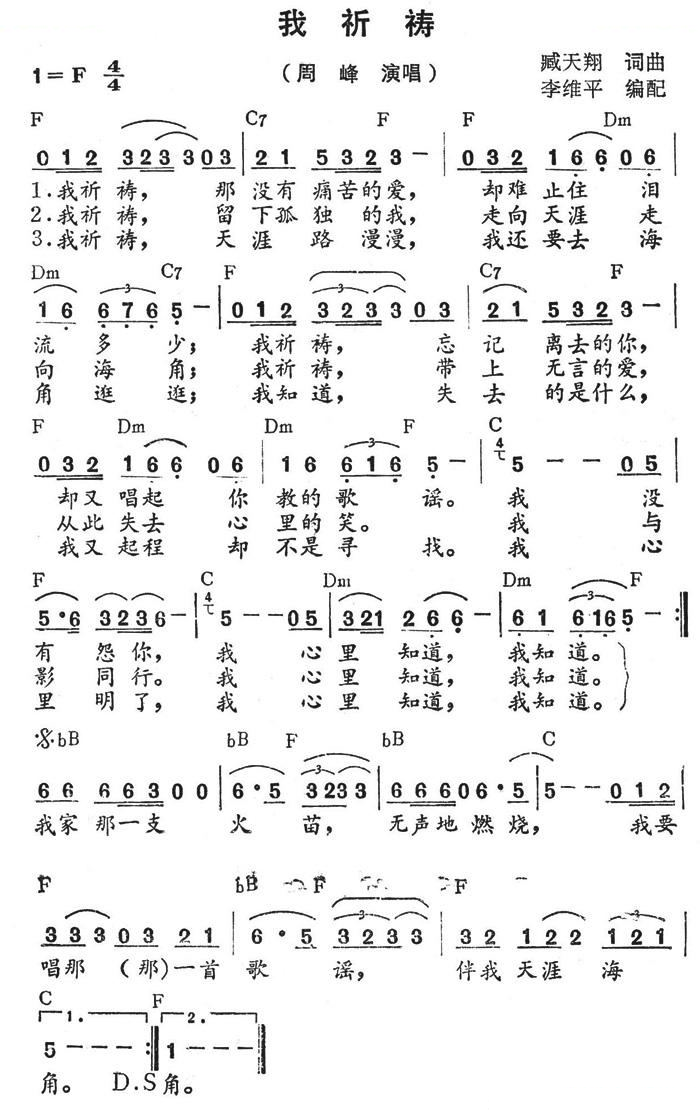 我祈祷
1=F 4/4 (周峰 演唱) 臧天翔 词曲
李维平 编配
F C7 F F Dm
0 1 2 3 2 3 3 0 3 | 2 1 5 3 2 3 — | 0 3 2 1 6 6 0 6
1.我祈祷, 那没有痛苦的爱, 却难止住泪
2.我祈祷, 留下孤独的我, 走向天涯走
3.我祈祷, 天涯路漫漫, 我还要去海
Dm C7 F C7 F
1 6 6 7 6 5 — | 0 1 2 3 2 3 3 0 3 | 2 1 5 3 2 3 — |
流多少; 我祈祷, 忘记离去的你,
向海角; 我祈祷, 带上无言的爱,
角逛逛; 我知道, 失去的是什么,
F Dm Dm F C
0 3 2 1 6 6 0 6 | 1 6 6 1 6 5 — | 5 — — 0 5
却又唱起你教的歌谣。 我没
从此失去心里的笑。 我与
我又起程却不是寻找。 我心
F C Dm Dm F
5·6 3 2 3 6 — | 5 — — 0 5 | 3 2 1 2 6 6 — | 6 1 6 1 6 5 — :||
有怨你, 我心里知道, 我知道。
影同行。 我心里知道, 我知道。
里明了, 我心里知道, 我知道。
bB bB F bB C
6 6 6 6 3 0 0 | 6·5 3 2 3 3 | 6 6 6 0 6·5 | 5 — — 0 1 2 |
我家那一支火苗, 无声地燃烧, 我要
F bB F F
3 3 3 0 3 2 1 | 6·5 3 2 3 3 | 3 2 1 2 2 1 2 1 |
唱那(那)一首歌谣, 伴我天涯海
C F
1. 2.
5 — — — :|| 1 — — — ||
角。 D.S 角。